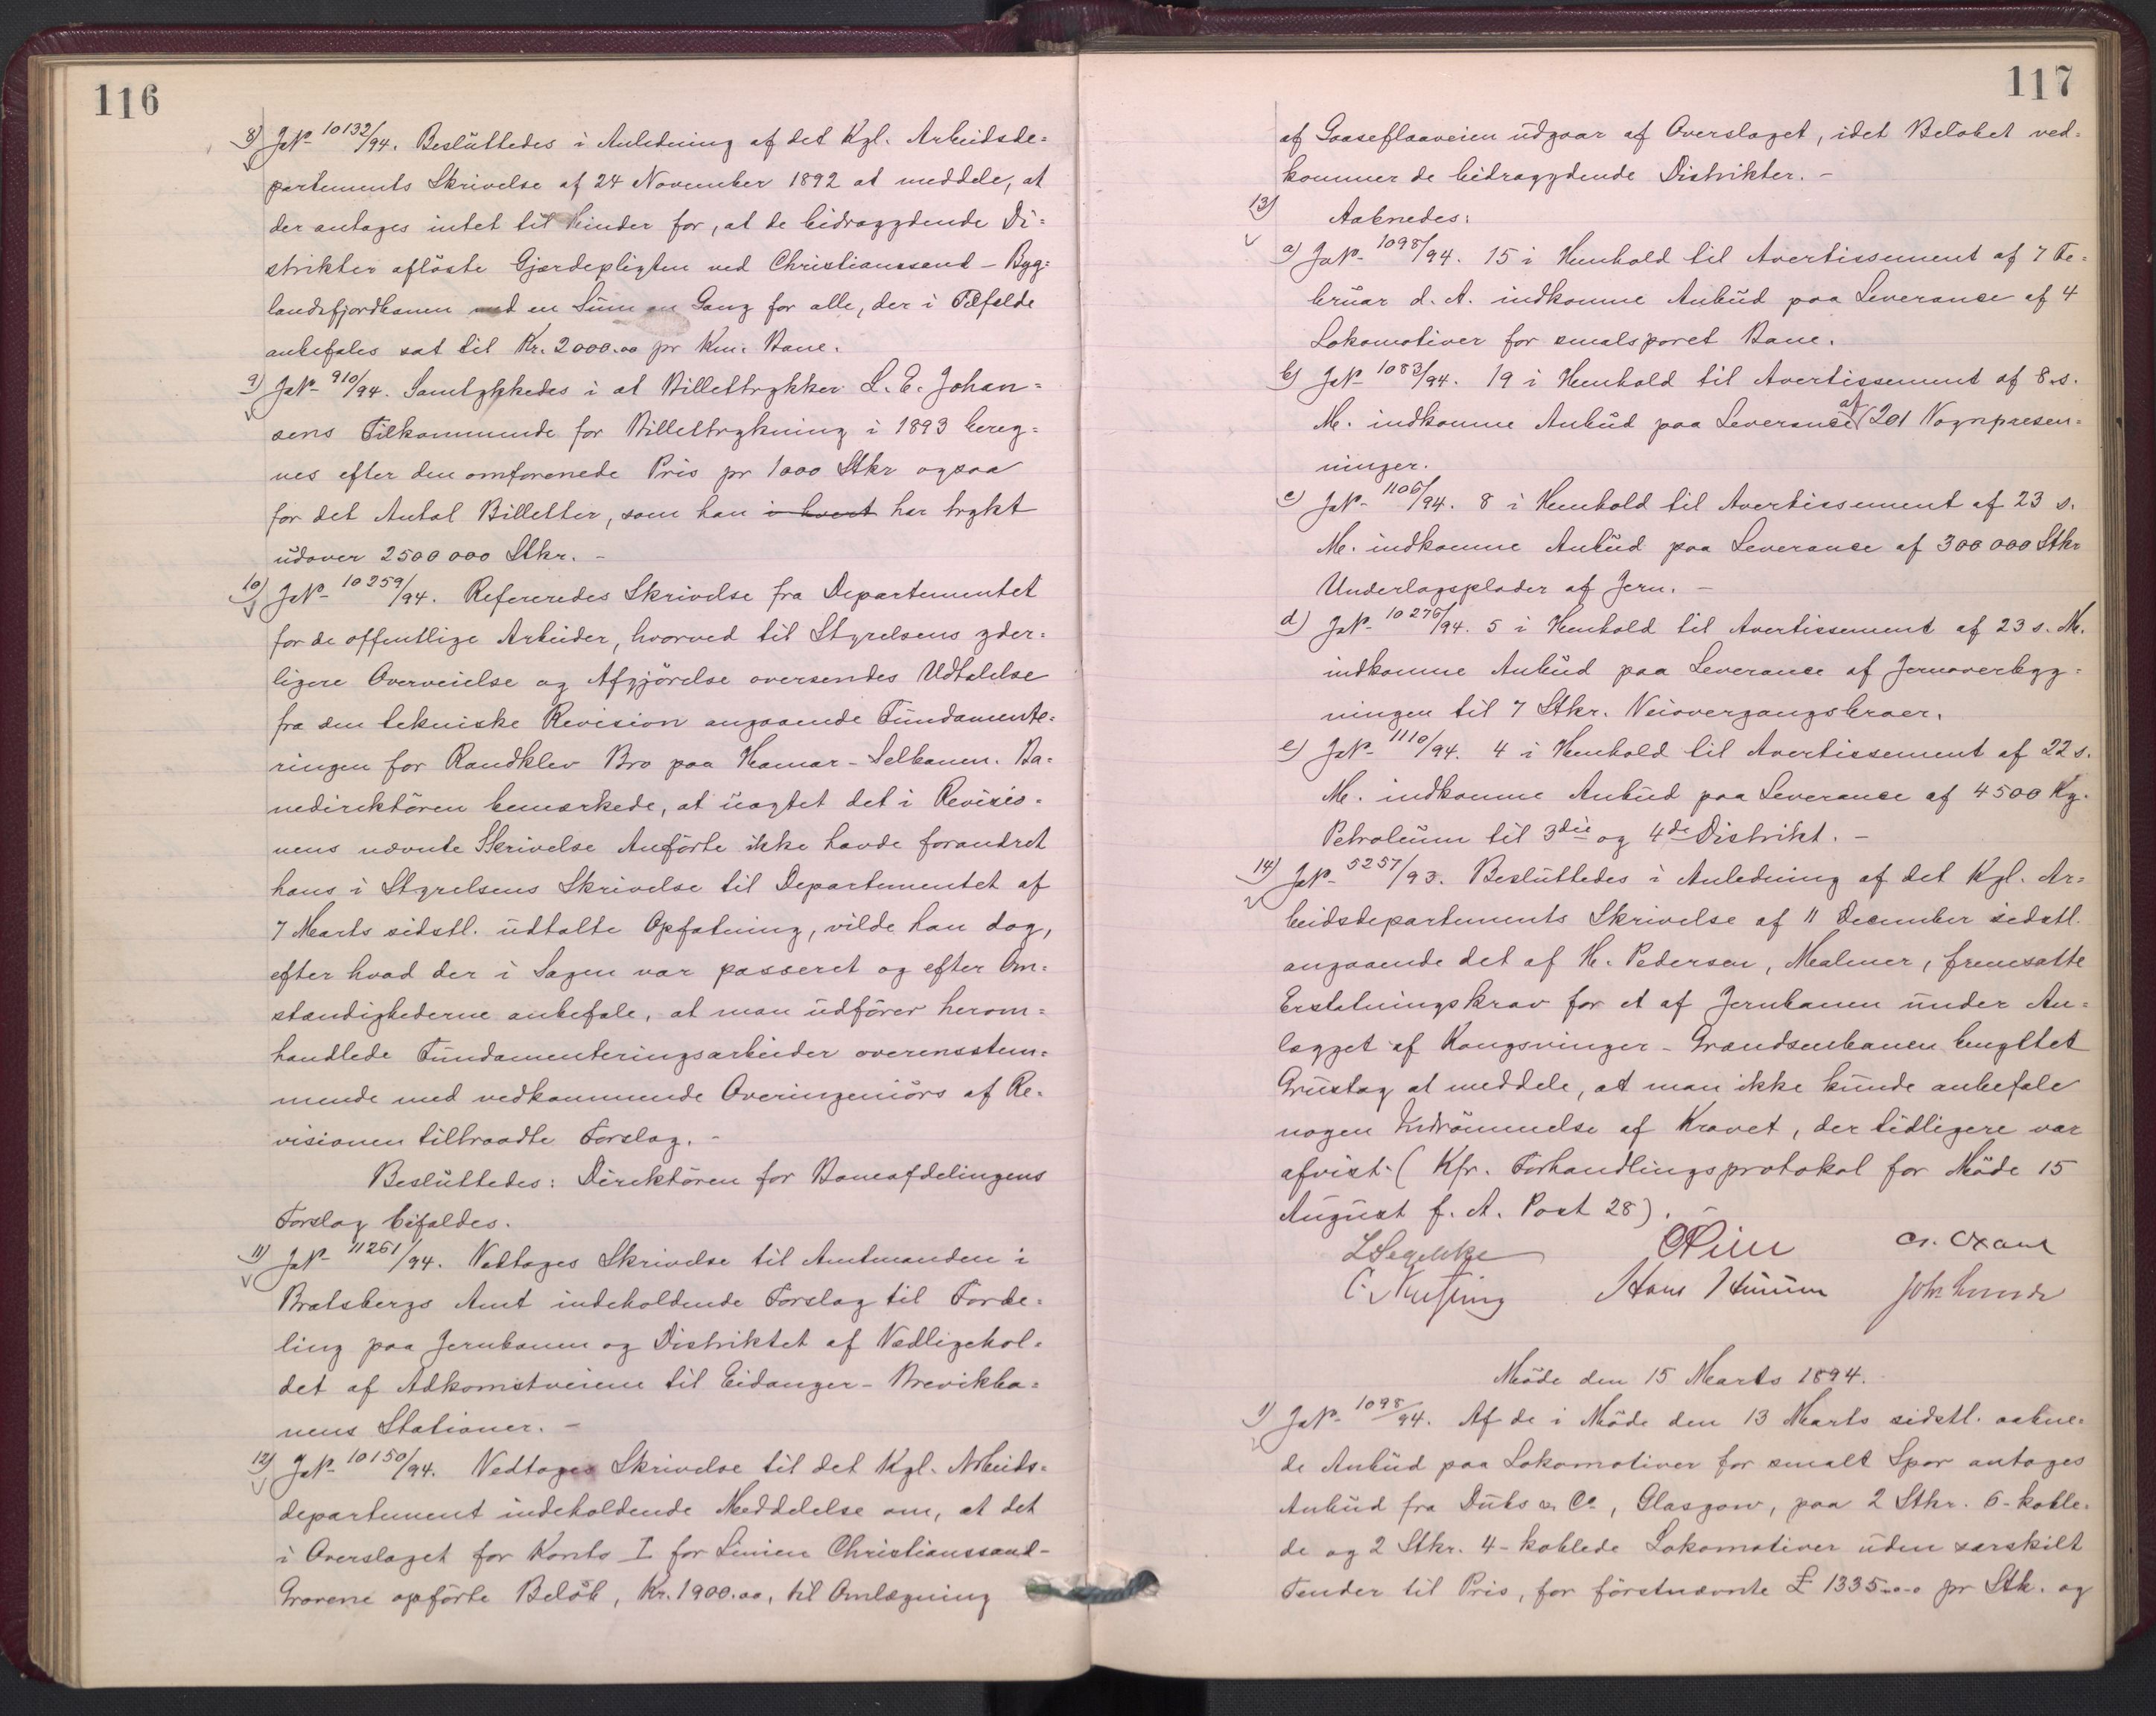 116
8) JNo 10132/94. Besluttedes i Anledning af det Kgl. Arbeidsde=
partements Skrivelse af 24 November 1892 at meddele, at
der antages intet til Hinder for, at de bidragydende Di=
strikter aflöste Gjærdepligten ved Christianssand - Byg=
landsfjordbanen med en Sum en Gang for alle, der i Tilfælde
anbefales sat til Kr. 2000.00 pr Km. Bane.
9) JNo 910/94. Samtykkedes i at Billettrykker L. E. Johan=
sens Tilkommende for Billettrykning i 1893 bereg=
nes efter den omforenede Pris pr 1000 Stkr ogsaa
for det Antal Billetter, som han i hvert har trykt
udover 2500000 Stkr. -
10) JNo 10259/94. Refereredes Skrivelse fra Departementet
for de offentlige Arbeider, hvorved til Styrelsens yder=
ligere Overveielse og Afgjörelse oversendes Udtalelse
fra den tekniske Revision angaaende Fundamente=
ringen for Randklev Bro paa Hamar - Selbanen. Ba=
nedirektören bemærkede, at uagtet det i Revisio=
nens nævnte Skrivelse Anförte ikke havde forandret
hans i Styrelsens Skrivelse til Departementet af
7 Marts sidstl. udtalte Opfatning, vilde han dog,
efter hvad der i Sagen var passeret og efter Om=
stændighederne anbefale, at man udförer herom=
handlede Fundamenteringsarbeider overensstem=
mende med vedkommende Overingeniörs af Re=
visionen tiltraadte Forslag. -
Besluttedes: Direktören for Baneafdelingens
Forslag bifaldes.
11) JNo 11261/94. Vedtoges Skrivelse til Amtmanden i
Bratsbergs Amt indeholdende Forslag til Forde=
ling paa Jernbanen og Distriktet af Vedligehol=
det af Adkomstveiene til Eidanger - Brevikba=
nens Stationer. -
12) JNo 10150/94. Vedtoges Skrivelse til det Kgl. Arbeids=
departement indeholdende Meddelelse om, at det
i Overslaget for Konto I for Linien Christianssand -
Grovene opförte Belöb, Kr. 1900.00, til Omlægning
117
af Gaaseflaaveien udgaar af Overslaget, idet Belöbet ved=
kommer de bidragydende Distrikter. -
13) Aabnedes:
a) JNo 1098/94. 15 i Henhold til Avertissement af 7 Fe=
bruar d. A. indkomne Anbud paa Leverance af 4
Lokomotiver for smalsporet Bane.
b) JNo 1083/94. 19 i Henhold til Avertissement af 8 s.
M. indkomne Anbud paa Leverance af 201 Vognpresen=
ninger.
c) JNo 1106/94. 8 i Henhold til Avertissement af 23 s.
M. indkomne Anbud paa Leverance af 300000 Stkr
Underlagsplader af Jern. -
d) JNo 10276/94. 5 i Henhold til Avertissement af 23 s. M.
indkomne Anbud paa Leverance af Jernoverbyg=
ningen til 7 Stkr. Veiovergangsbroer.
e) JNo 1110/94. 4 i Henhold til Avertissement af 22 s.
M. indkomne Anbud paa Leverance af 4500 Kg.
Petroleum til 3die og 4de Distrikt. -
14) JNo 5257/93. Besluttedes i Anledning af det Kgl. Ar=
beidsdepartements Skrivelse af 11 December sidstl.
angaaende det af H. Pedersen, Malmer, fremsatte
Erstatningskrav for et af Jernbanen under An=
lægget af Kongsvinger - Grændsenbanen benyttet
Grustag at meddele, at man ikke kunde anbefale
nogen Indrömmelse af Kravet, der tidligere var
afvist. (Kfr. Forhandlingsprotokol for Möde 15
August f. A. Post 28).
Hans
Möde den 15 Marts 1894.
1) JNo 1098/94. Af de i Möde den 13 Marts sidstl. aabne=
de Anbud paa Lokomotiver for smalt Spor antages
Anbud fra Dübs & Co, Glasgow, paa 2 Stkr. 6-koble=
de og 2 Stkr. 4-koblede Lokomotiver uden særskilt
Tender til Pris, for förstnævnte £ 1335-0-0 pr Stk. og